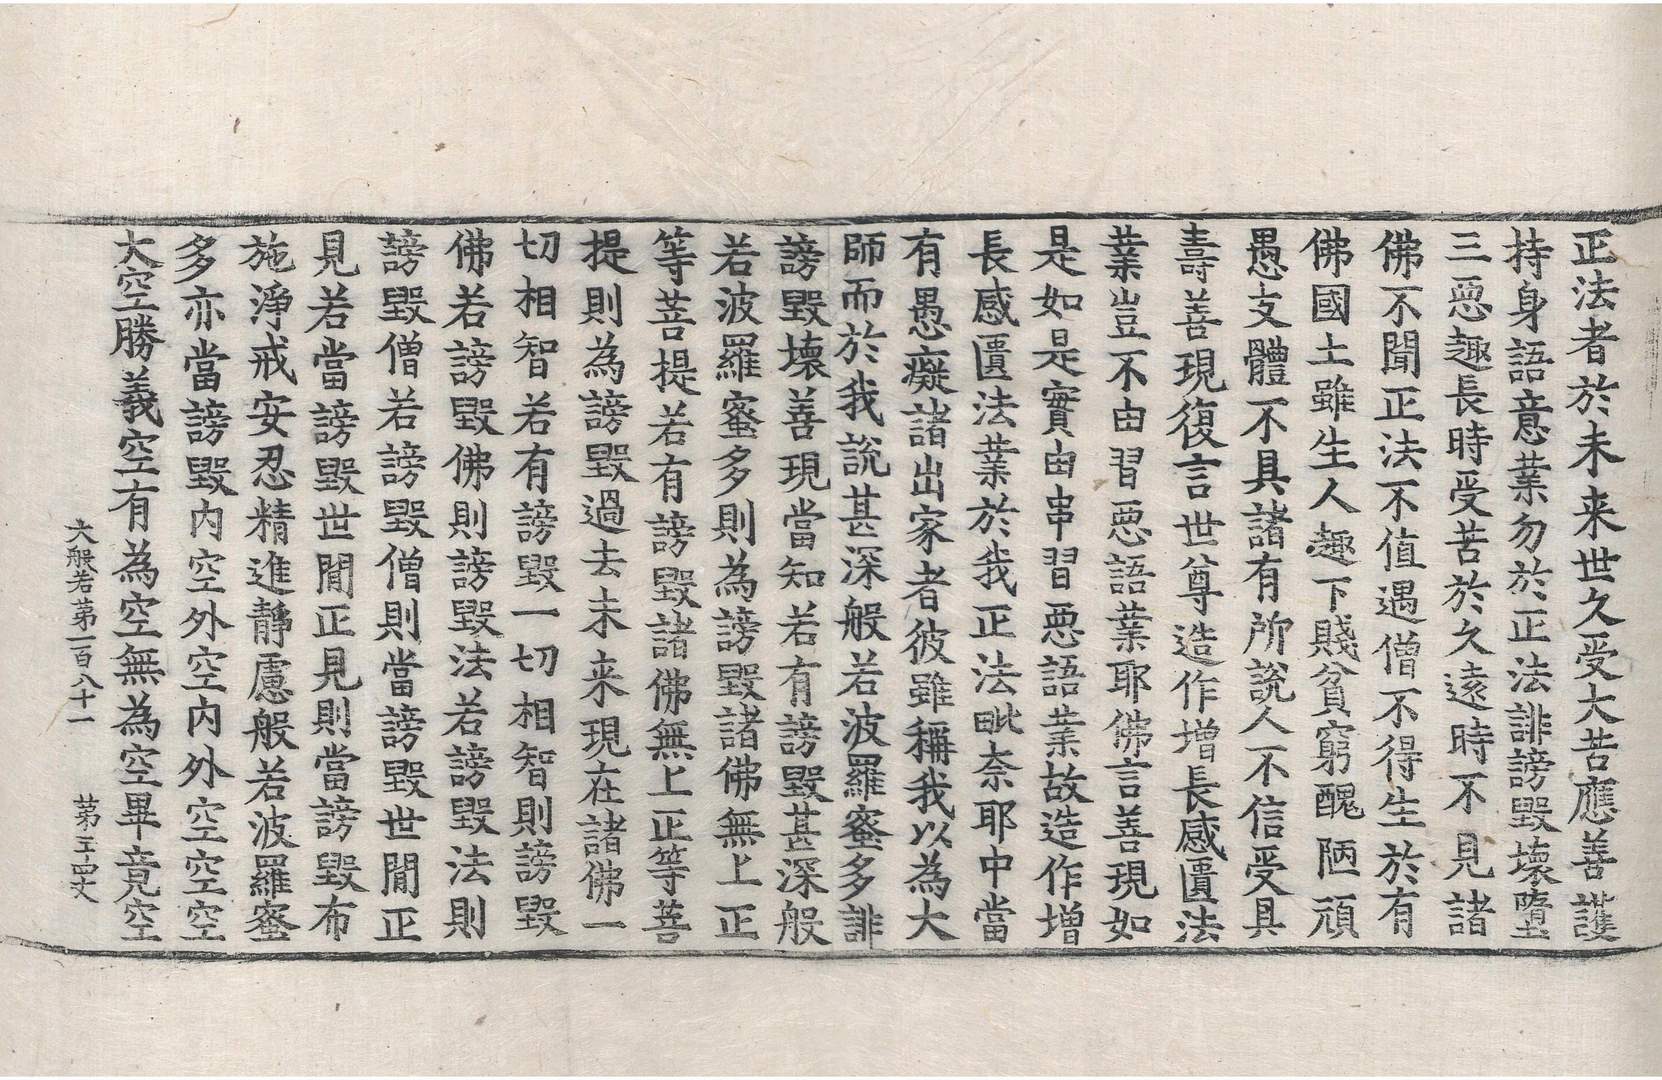 正法者於未来世久受大苦應善護
持身語意業勿於正法誹謗毀壞墮
三惡趣長時受苦於久遠時不見諸
佛不聞正法不值遇僧不得生於有
佛國土雖生人趣下賤貧窮醜陋頑
愚支體不具諸有所說人不信受具
壽善現復言世尊造作增長感匱法
業豈不由習惡語業耶佛言善現如
是如是實由串習惡語業故造作增
長感匱法業於我正法毗奈耶中當
有愚癡諸出家者彼雖稱我以為大
師而於我說甚深般若波羅蜜多誹
謗毀壞善現當知若有謗毀甚深般
若波羅蜜多則為謗毀諸佛無上正
等菩提若有謗毀諸佛無上正等菩
提則為謗毀過去未来現在諸佛一
切相智若有謗毀一切相智則謗毀
佛若謗毀佛則謗毀法若謗毀法則
謗毀僧若謗毀僧則當謗毀世閒正
見若當謗毀世閒正見則當謗毀布
施淨戒安忍精進靜慮般若波羅蜜
多亦當謗毀內空外空內外空空空
大空勝義空有為空無為空畢竟空
大般若第一百八十一 第五四丈